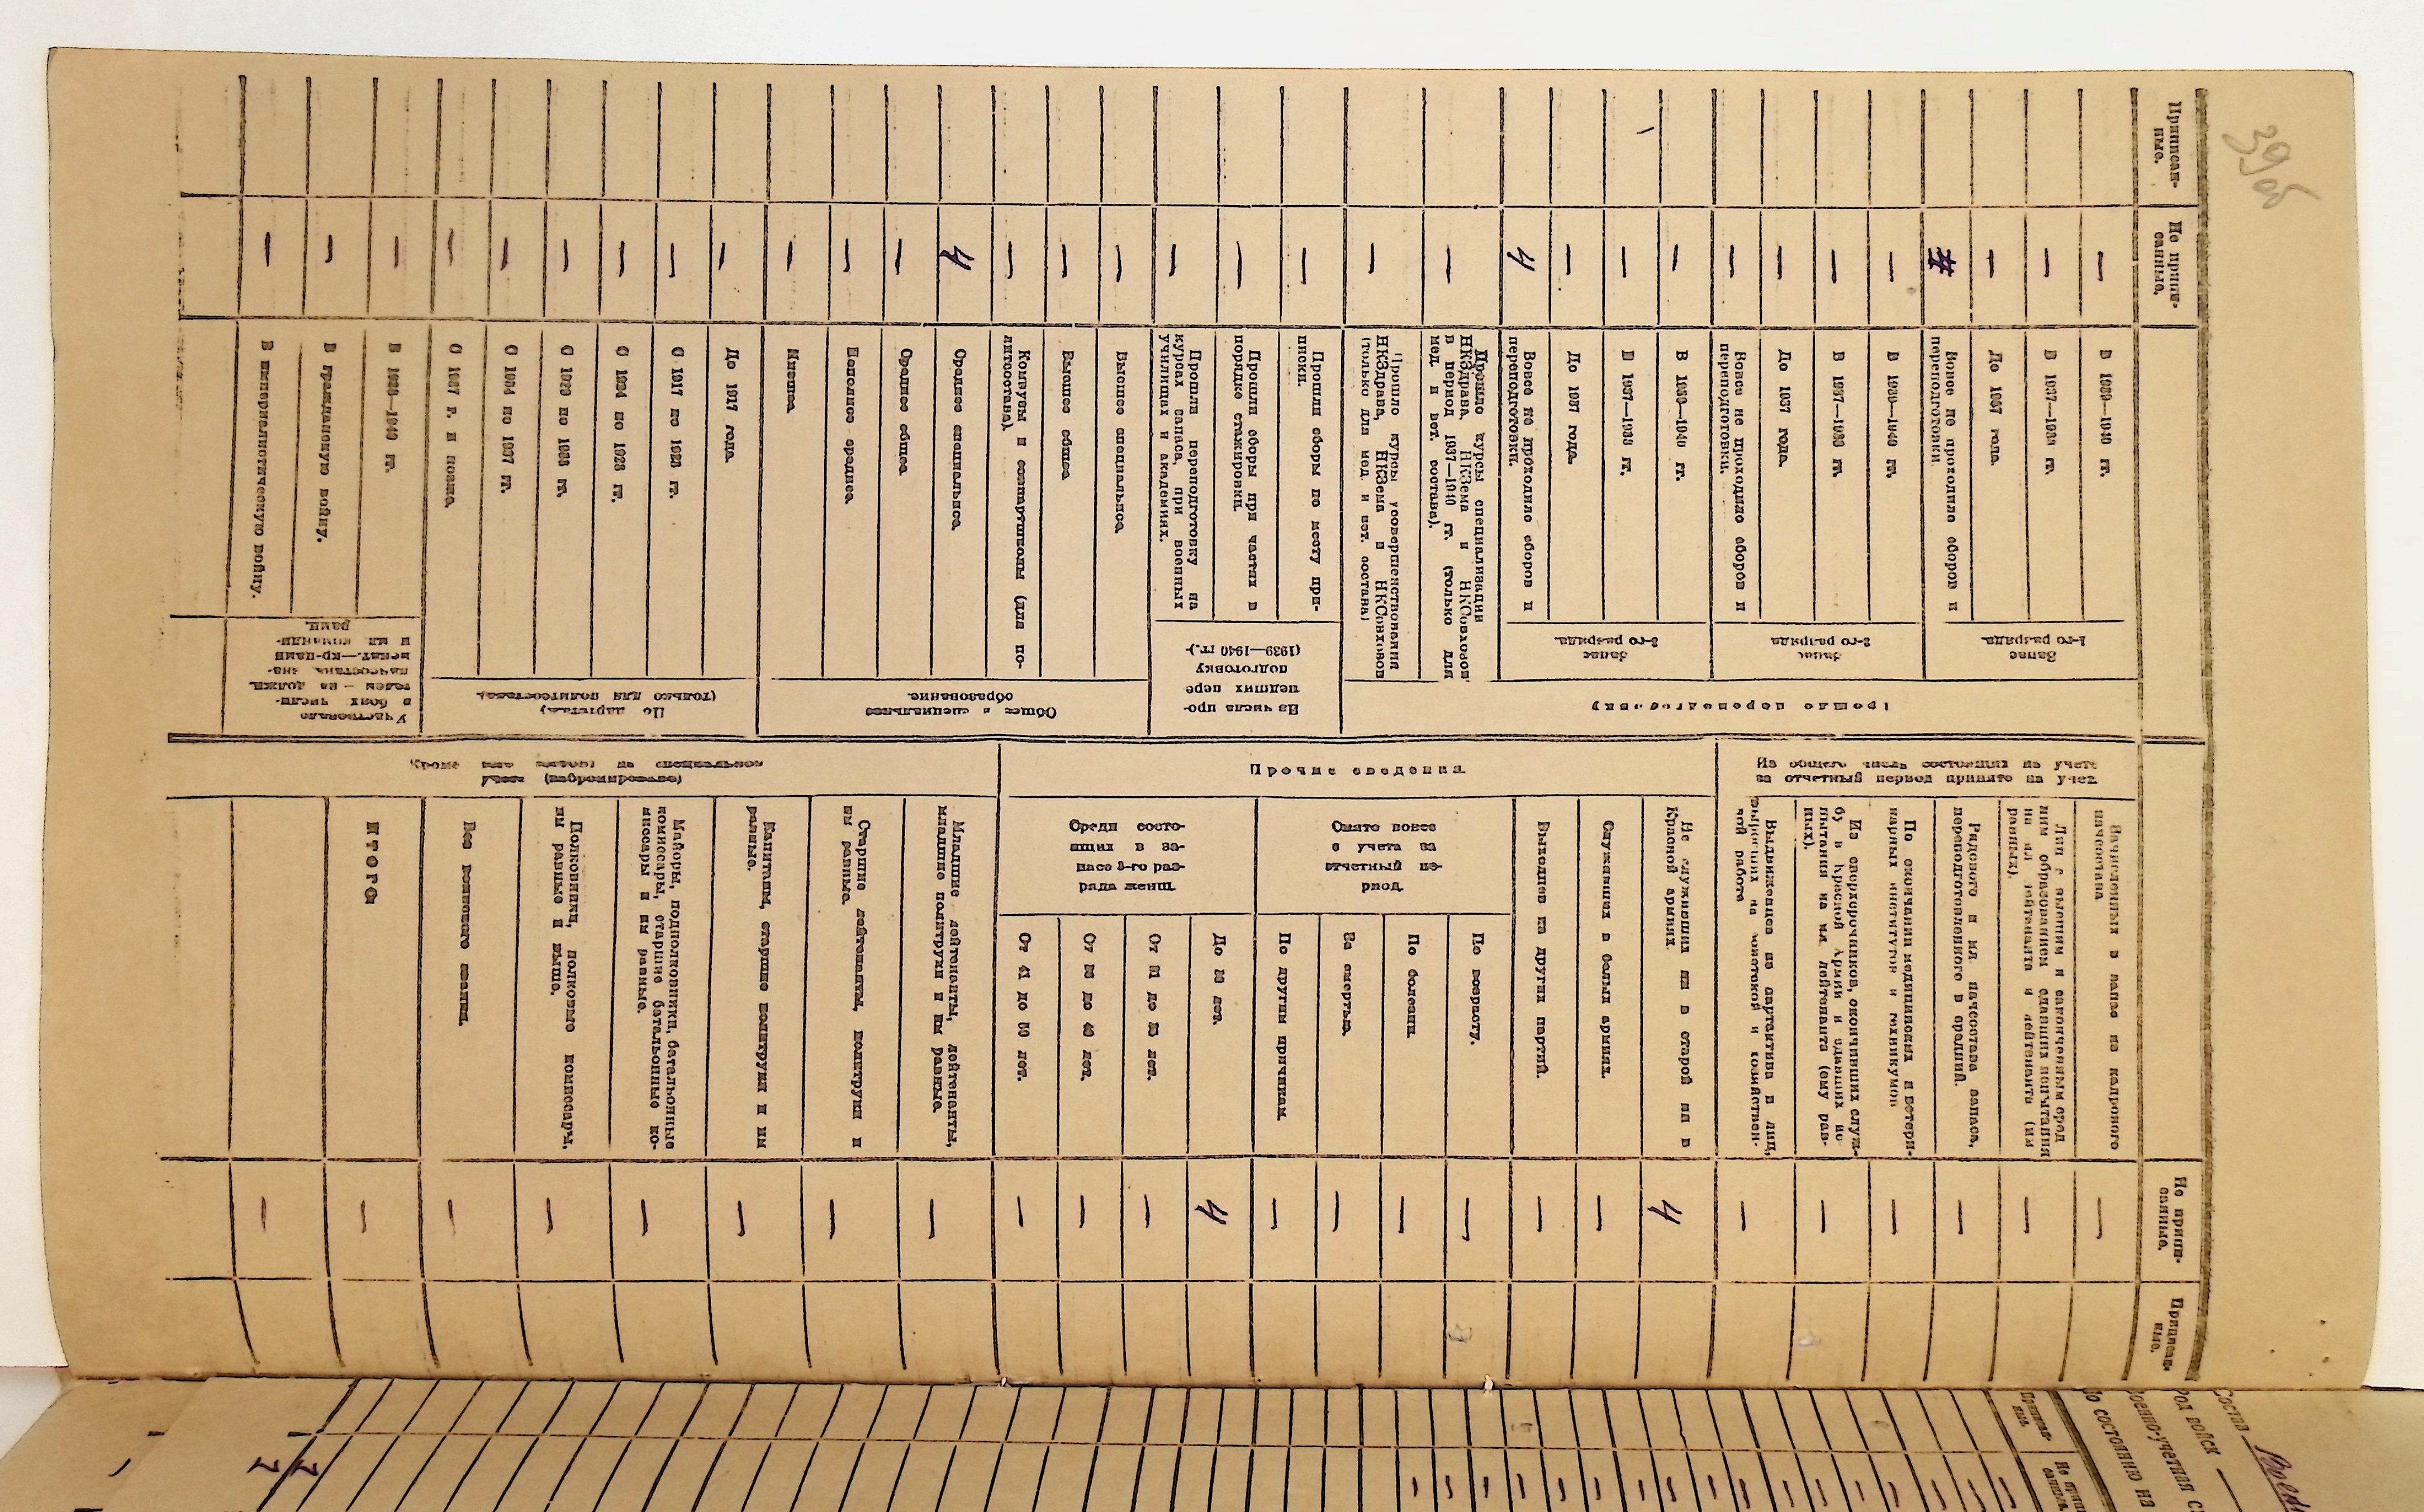 39об
Приписан-
ные.
Не припи-
санные.
Прошло переподготовку
Запас
1-го разряда.
В 1939—1940 гг.
—
В 1937—1938 гг.
—
До 1937 года.
—
Вовсе не проходило сборов и
переподготовки.
Запас
2-го разряда.
В 1939—1940 гг.
—
В 1937—1938 гг.
—
До 1937 года.
—
Вовсе не проходило сборов и
переподготовки.
—
Запас
3-го разряда.
В 1939—1940 гг.
—
В 1937—1938 гг.
—
До 1937 года.
—
Вовсе не проходило сборов и
переподготовки.
4
Прошло курсы специализации
НКЗдрава, НКЗема и НКСовхозов
в период 1937—1940 гг. (только для
мед. и вет. состава).
—
Прошло курсы усовершенствования
НКЗдрава, НКЗема и НКСовхозов
(только для мед. и вет. состава)
—
Из числа про-
шедших пере
подготовку
(1939—1940 гг.)
Прошли сборы по месту при-
писки.
—
Прошли сборы при частях в
порядке стажировки.
—
Прошли переподготовку на
курсах запаса, при военных
училищах и академиях.
—
Общее и специальное
образование.
Высшее специальное
—
Высшее общее
—
Комвузы и совпартшколы (для по-
литсостава).
—
Среднее специальное
4
Среднее общее
—
Неполное среднее.
—
Низшее.
—
По партстажу
(только для политсостава)
До 1917 года.
—
С 1917 по 1923 гг.
—
С 1924 по 1928 гг.
—
С 1929 по 1933 гг.
—
С 1934 по 1937 гг.
—
С 1937 г. и позже.
—
Участвовало
в боях числи-
телем — на должн.
начсостава, зна-
менат.—кр-цами
и мл. команди-
рами.
В 1938—1940 гг.
—
В гражданскую войну.
—
В империалистическую войну.
—
Не припи-
санные.
Приписан-
ные.
Из общего числа состоящих на учете
за отчетный период принято на учет
Зачисленных в запас из кадрового
начсостава
—
Лиц с высшим и законченным сред
ним образованием сдавших испытания
на мл. лейтенанта и лейтенанта (им
равных).
—
Рядового и мл. начсостава запаса,
переподготовленного в средний.
—
По окончании медицинских и ветери-
нарных институтов и техникумов
—
Из сверхсрочников, окончивших служ-
бу в Красной Армии и сдавших ис
пытания на мл. лейтенанта (ему рав-
ных).
—
Выдвиженцев из партактива и лиц,
—
Прочие сведения
Не служивших ни в старой ни в
Красной армиях.
4
Служивших в белых армиях.
—
Выходцев из других партий.
—
Снято вовсе
с учета за
отчетный пе-
риод
По возрасту.
—
По болезни.
—
За смертью.
—
По другим причинам.
—
Среди состо-
ящих в за-
пасе 3-го раз-
ряда женщ.
До 30 лет.
4
От 31 до 35 лет.
—
От 36 до 40 лет.
—
От 41 до 50 лет.
—
Кроме того состоит на специальном
учете (забронировано)
Младшие лейтенанты, лейтенанты,
младшие политруки и им равные.
—
Старшие лейтенанты, политруки и
им равные.
—
Капитаны, старшие политруки и им
равные.
—
Майоры, подполковники, батальонные
комиссары, старшие батальонные ко-
миссары и им равные.
—
Полковники, полковые комиссары,
им равные и выше.
—
Без воинского звания.
—
ИТОГО
—
—
Состав
Род войск
По состоянию на